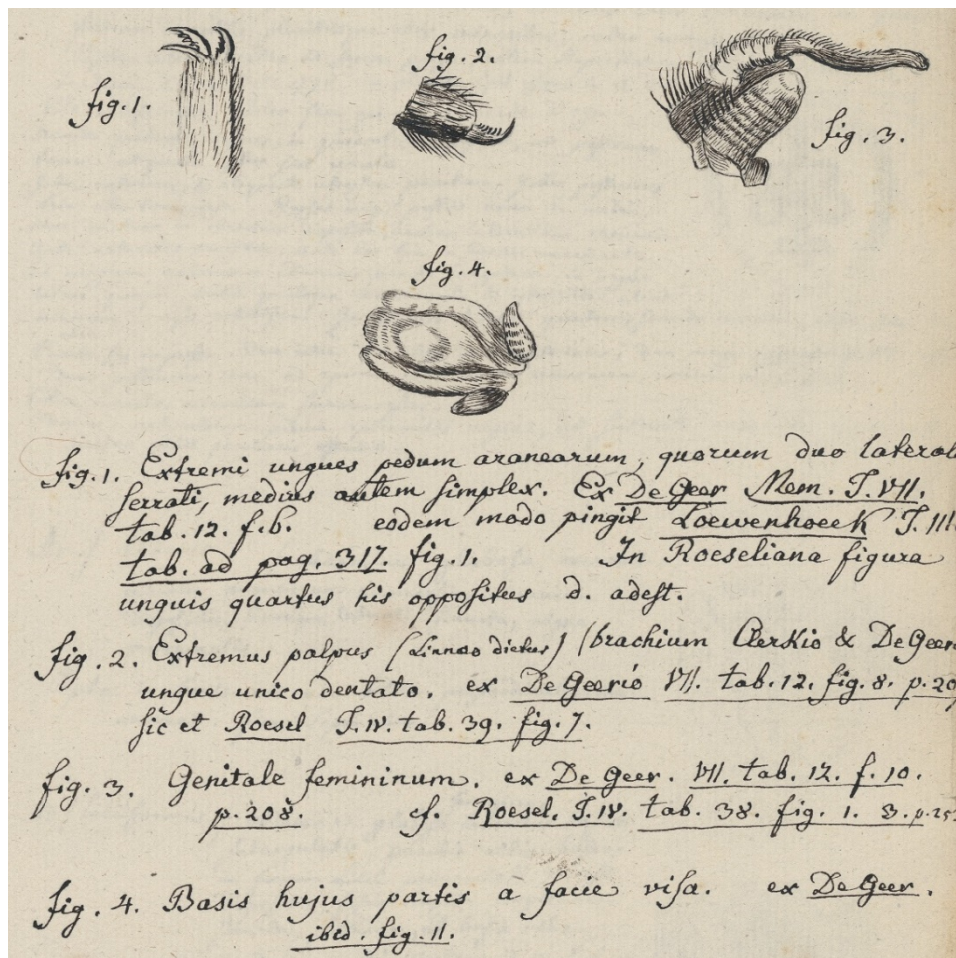 fig. 1.
fig. 2.
fig. 3.
fig. 4.
fig. 1. Extremi ungues pedum aranearum, quorum duo lateral
serrati, medius autem simplex. Ex De Geer Mem. T. VII.
tab. 12. f. 6. eodem modo pingit Loewenhoeek T. III.
tab. ad pag. 317. fig. 1. In Roeseliana figura
unguis quartus his oppositus d. adest.
fig. 2. Extremus palpus (Linnao dictus) (brachium Clerkio & De Geer
ungue unico dentato. ex De Geerio VII. tab. 12. fig. 8. p. 20
sic et Roesel T. IV. tab. 39. fig. 7.
fig. 3. Genitale femininum. ex De Geer. VII. tab. 12. f. 10.
p. 208. cf. Roesel. T. IV. tab. 38. fig. 1. 3. p. 25
fig. 4. Basis hujus partis a facie visa. ex De Geer.
ibid. fig. 11.